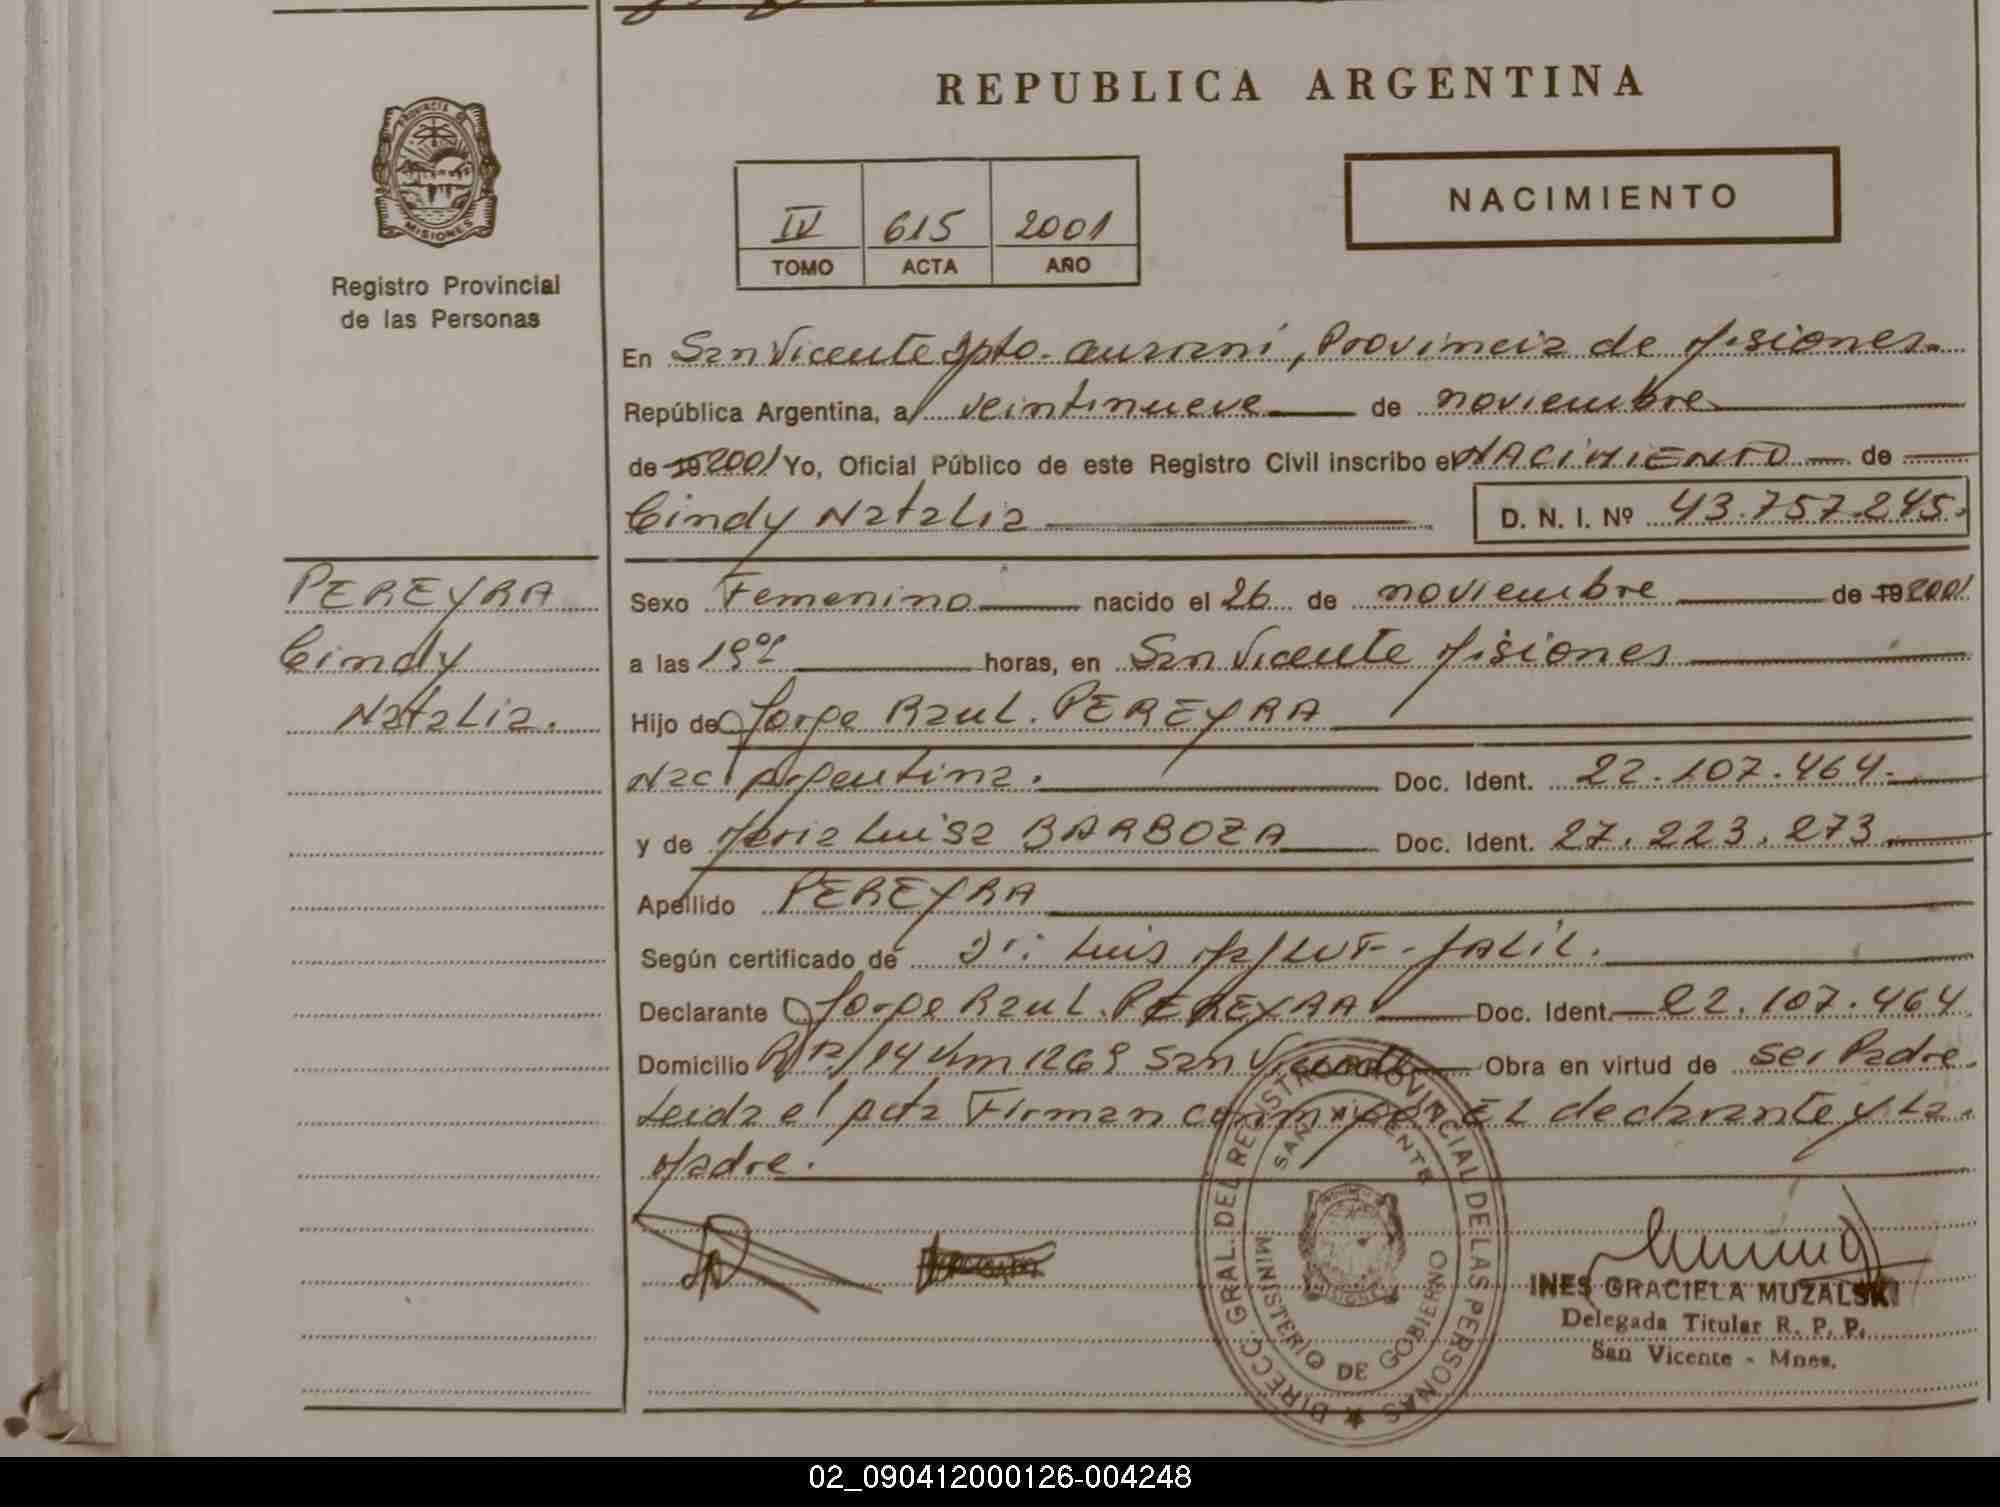 REPUBLICA ARGENTINA
PROVINCIA DE
MISIONES
Registro Provincial
de las Personas
IV 615 2001
TOMO ACTA AÑO
NACIMIENTO
En San Vicente Dpto. Guaraní, Provincia de Misiones.
República Argentina, a veintinueve de noviembre
de 19 2001 Yo, Oficial Público de este Registro Civil inscribo el NACIMIENTO de
Cindy Natalia D. N. I. Nº 43.757.245.
PEREYRA
Cindy
Natalia.
Sexo Femenino nacido el 26 de noviembre de 19 2001
a las horas, en San Vicente Misiones
Hijo de Jorge Raul. PEREYRA
Nac. Argentina. Doc. Ident. 22.107.464.
y de Maria Luisa BARBOZA Doc. Ident. 27.223.273
Apellido PEREYRA
Según certificado de Dr. Luis JALIL.
Declarante Jorge Raul. PEREYRA Doc. Ident. 22.107.464
Domicilio 14 Km 1269 San Vicente Obra en virtud de ser Padre.
Leida el acta Firman conmigo EL declarante y La.
Madre.
DIRECC. GRAL. DEL REGISTRO PROVINCIAL DE LAS PERSONAS
SAN VICENTE
MINISTERIO DE GOBIERNO
INES GRACIELA MUZALSKI
Delegada Titular R. P. P.
San Vicente - Mnes.
02_090412000126-004248